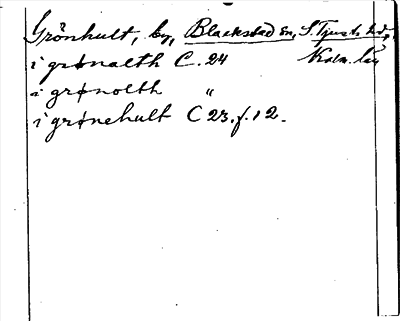 Grönhult, by, Blackstad sn, S. Tjusts hd,
i grønalth C. 24 Kalm. län
i grønolth "
i grønehult C 23. f. 12.